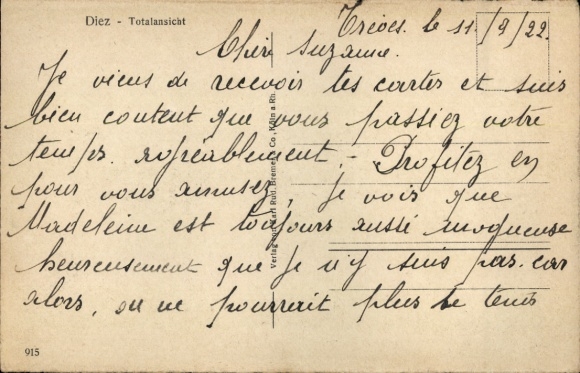 Diez - Totalansicht
Trèves. le 11/9/22.
Chère Suzanne.
Je viens de recevoir tes cartes et suis
bien content que vous passiez votre
temps. agréablement. - Profitez en
pour vous amusez, je vois que
Madeleine est toujours aussi moqueuse
heureusement que je n'y suis pas. car
alors, on ne pourrait plus te tenir
Verlag von Karl Rud. Bremer & Co., Köln a. Rh.
915